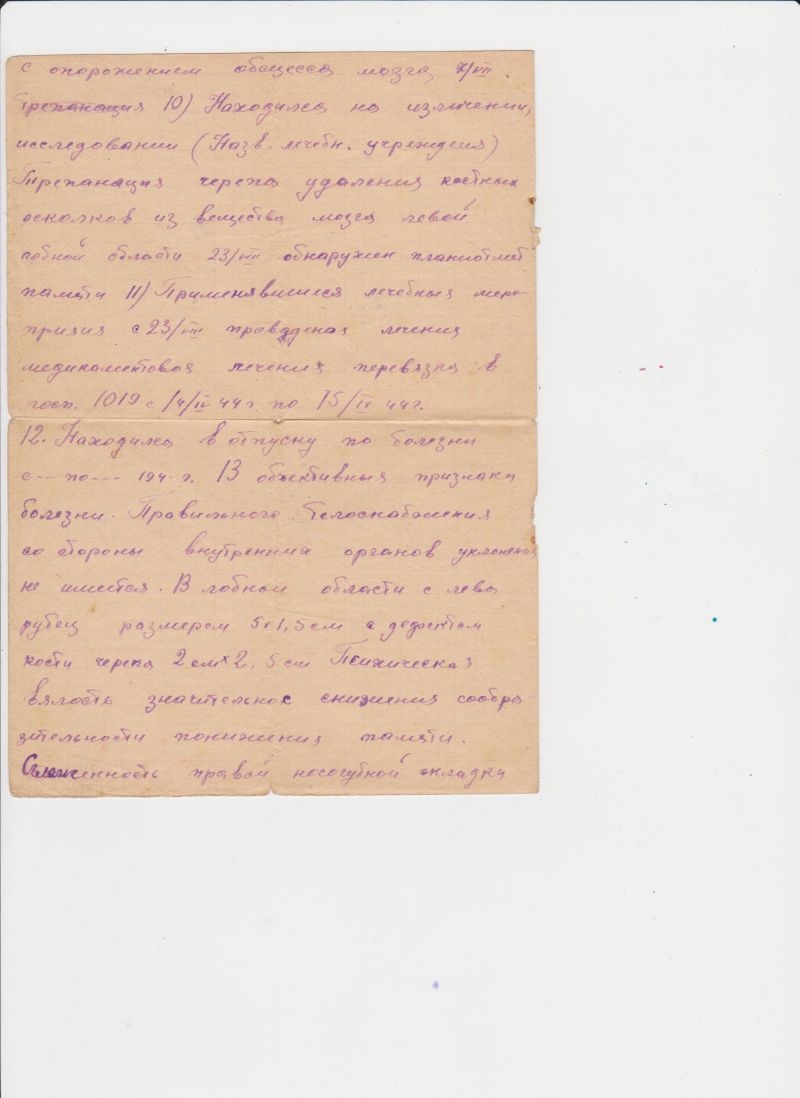 с опорожнением абсцесса мозга X/VIII
Трепанация 10) Находился на излечении,
исследовании (Назв. лечебн. учреждения)
Трепанация черепа удаления костных
осколков из вещества мозга левой
лобной области 23/VIII обнаружен
памяти 11) Применявшиеся лечебныя меро-
приᴙия с 23/VIII лечения
лечения перевязка в
госп. 1019 с 14/IV 44 г по 15/IX 44 г.
12. Находился в отпуску по болезни
с -- по --- 194- г. 13 объективныя признаки
болезни. Правильного телоснабжения
со стороны внутренних органов уклонения
не имеется. В лобной области с лева
рубец размером 5х1,5 см с дефектом
кости черепа 2 см х 2,5 см Психическая
вялость значительное снижения сообра-
зительности понижения памяти.
правой носогубной складки